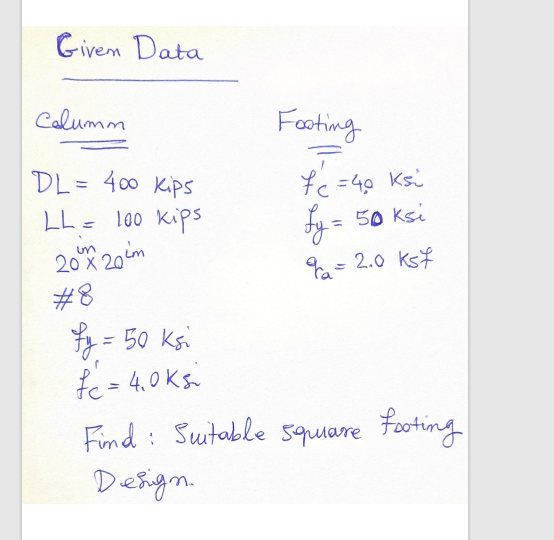 Given Data
Column
DL = 400 Kips
LL = 100 Kips
20in x 20in
#8
fy = 50 Ksi
f'c = 4.0 Ksi
Footing
f'c = 4.0 Ksi
fy = 50 Ksi
qa = 2.0 Ksf
Find : Suitable square footing
Design.